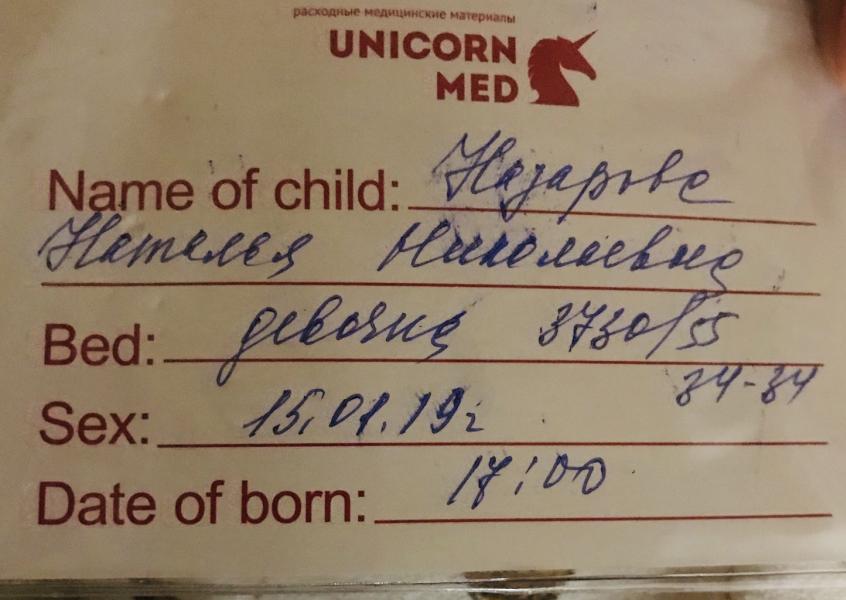 расходные медицинские материалы
UNICORN
MED
Name of child: Назарова
Наталья Николаевна
Bed: девочка 3730/55
34-34
Sex: 15.01.19г
Date of born: 17:00